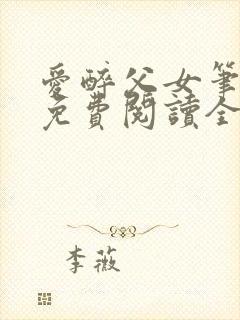 愛醉父女筆
免費閱讀全
李薇